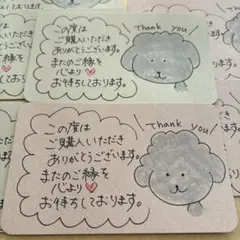 この度は
ご購入いただき
ありがとうございます。
またのご縁を
心より♡
お待ちしております。
Thank you!
この度は
ご購入いただき
ありがとうございます。
またのご縁を
心より♡
お待ちしております。
Thank you!